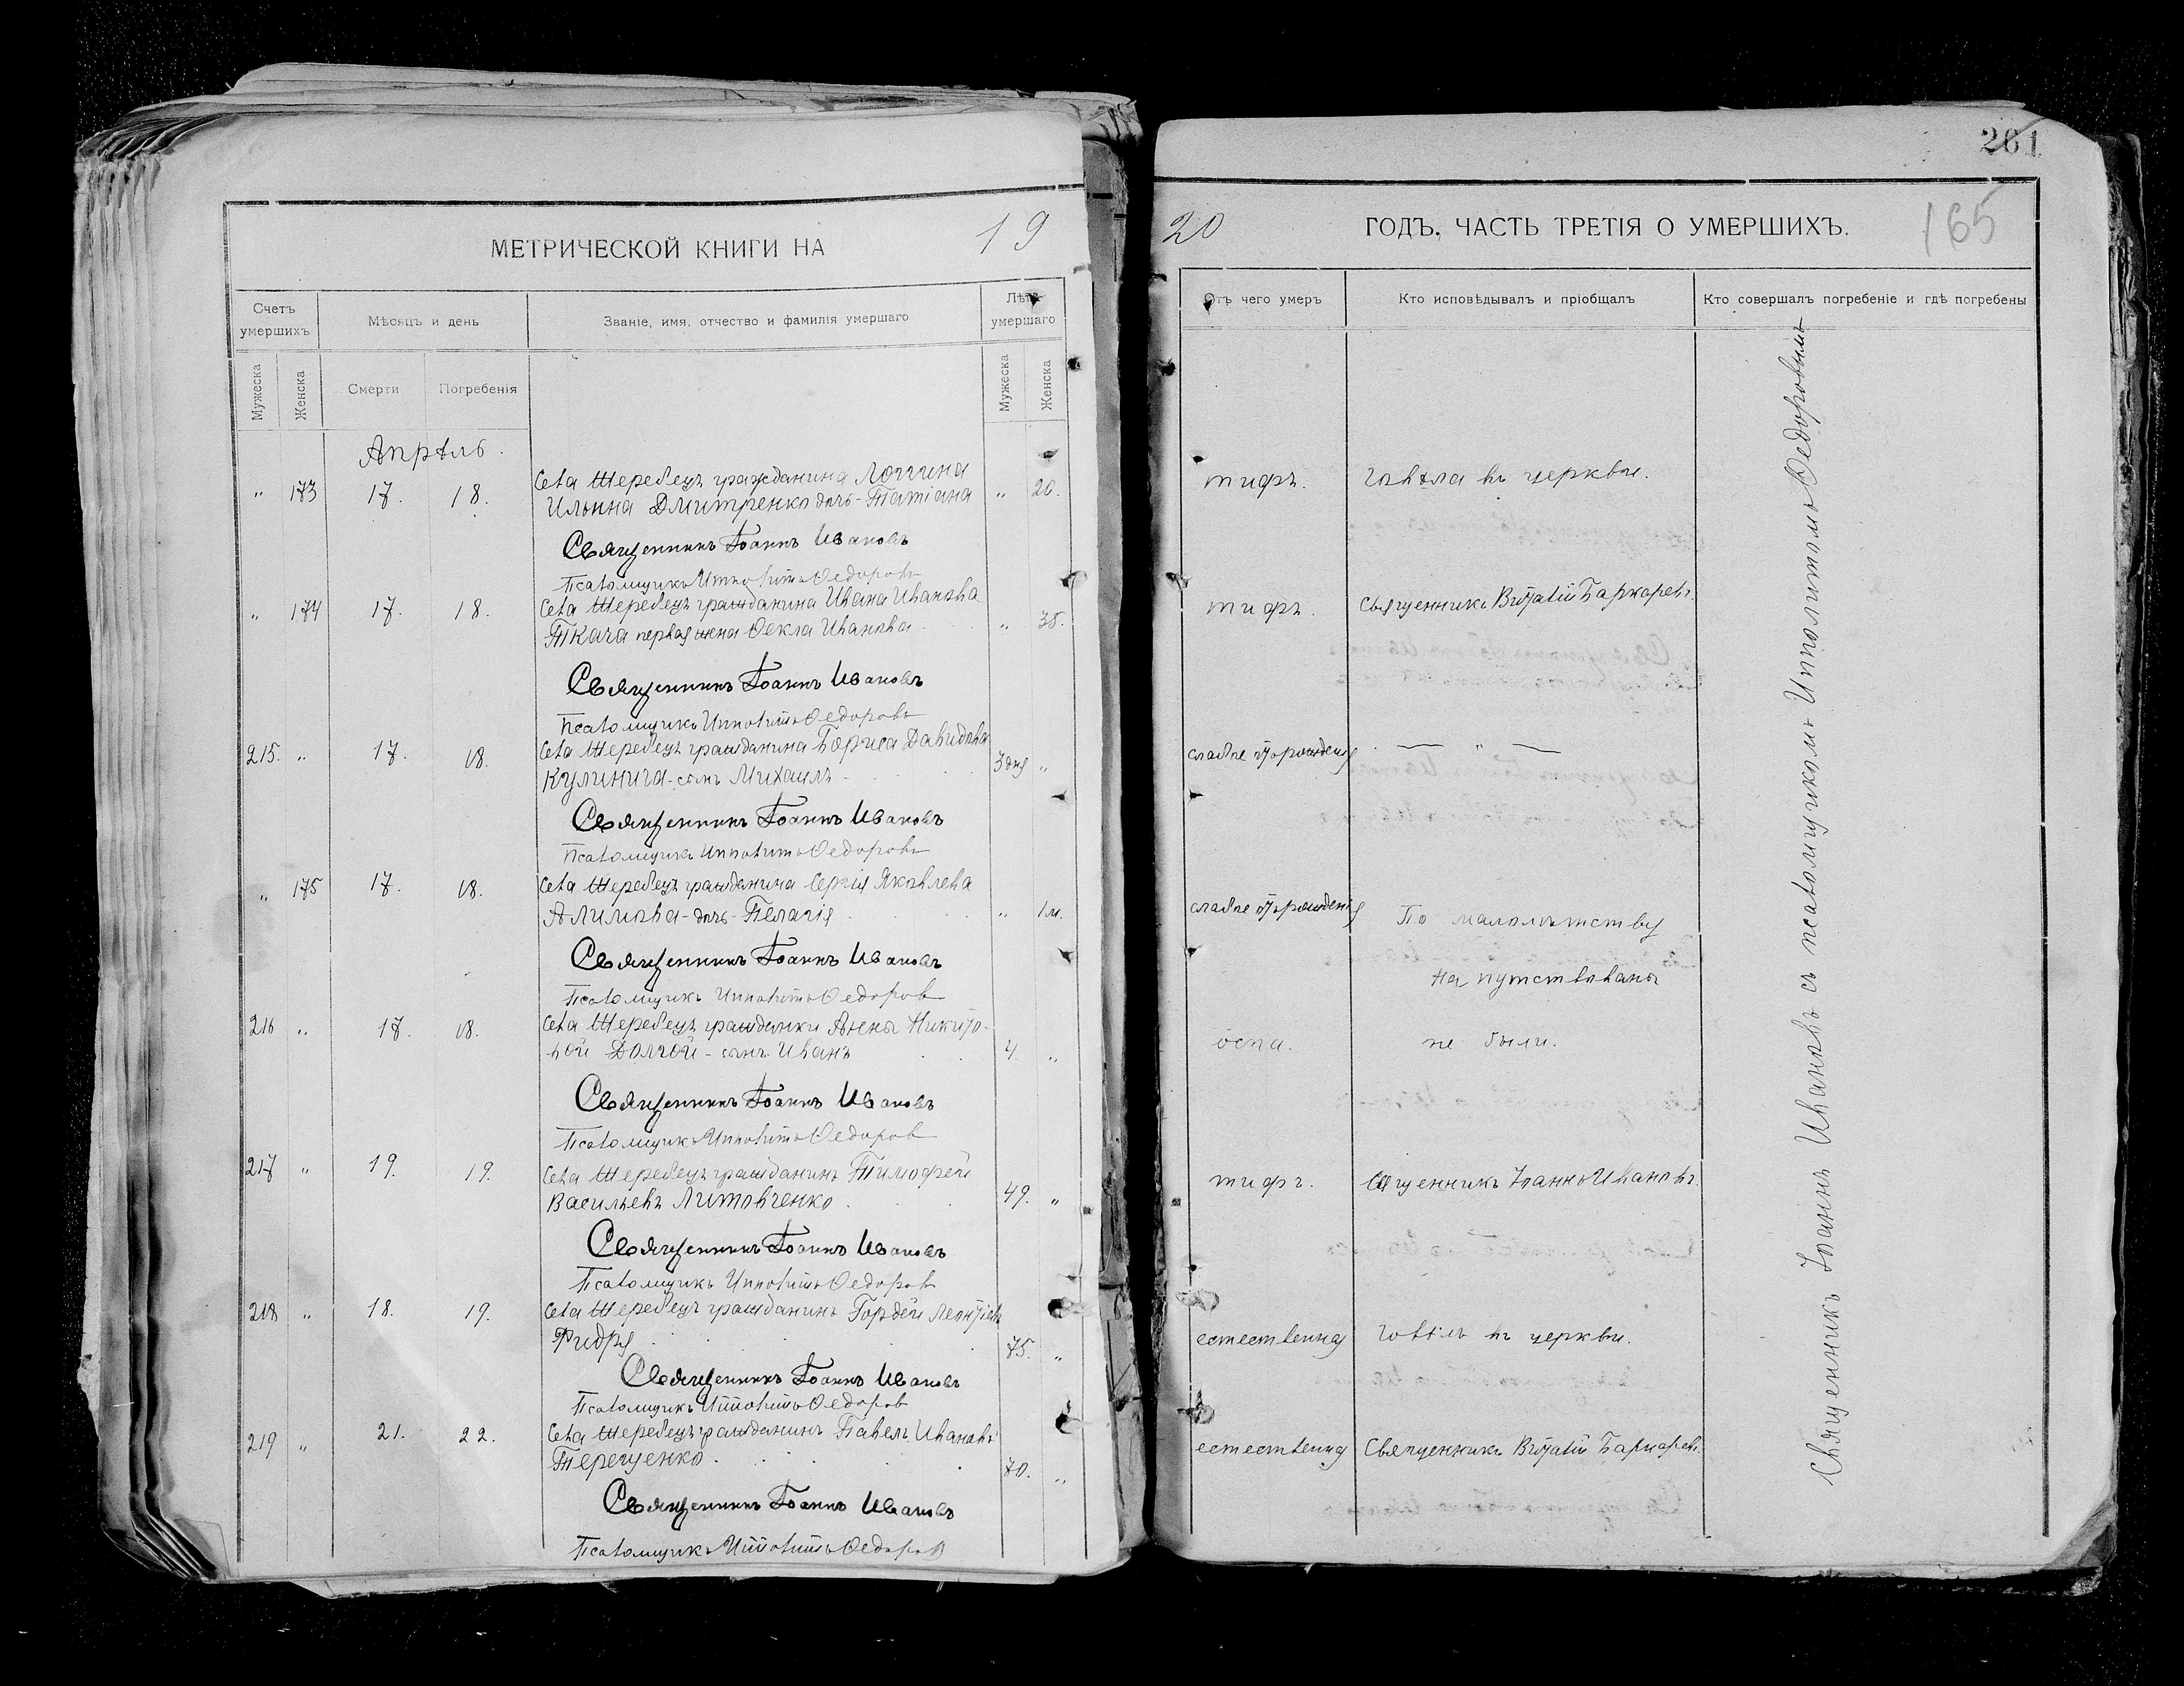 261
МЕТРИЧЕСКОЙ КНИГИ НА 19
20 ГОДЪ, ЧАСТЬ ТРЕТІЯ О УМЕРШИХЪ. 165
Счетъ умершихъ
Мѣсяцъ и день
Званіе, имя, отчество и фамилія умершаго
Лѣта умершаго
Мужеска
Женска
Смерти
Погребенія
Мужеска
Женска
Отъ чего умеръ
Кто исповѣдывалъ и пріобщалъ
Кто совершалъ погребеніе и гдѣ погребены
Апрѣль.
" 173 17. 18. Села Шеребецъ гражданина Логгина " 20.
Ильина Дмитренко дочь - Татіана
Священникъ Іоаннъ Ивановъ
Псаломщикъ Ипполитъ Ѳедоровъ
" 174 17. 18. Села Шеребецъ гражданина Ивана Иванова
Ткача первая жена Ѳекла Иванова " 35.
Священникъ Іоаннъ Ивановъ
Псаломщикъ Ипполитъ Ѳедоровъ
215. " 17. 18. Села Шеребецъ гражданина Бориса Давидова
Кулинича - сынъ Михаилъ 3 дня "
Священникъ Іоаннъ Ивановъ
Псаломщикъ Ипполитъ Ѳедоровъ
" 175 17. 18. Села Шеребецъ гражданина Сергія Яковлева
Алимова - дочь - Пелагія " 1 м.
Священникъ Іоаннъ Ивановъ
Псаломщикъ Ипполитъ Ѳедоров
216 " 17. 18. Села Шеребецъ гражданки Анны Никито-
вой Долгой - сынъ Иванъ 4. "
Священникъ Іоаннъ Ивановъ
Псаломщикъ Ипполитъ Ѳедоров
217 " 19. 19. Села Шеребецъ гражданинъ Тимофей
Васильевъ Литовченко 49. "
Священникъ Іоаннъ Ивановъ
Псаломщикъ Ипполитъ Ѳедоров
218 " 18. 19. Села Шеребецъ гражданинъ Гордей Леонтіевъ
75. "
Священникъ Іоаннъ Ивановъ
Псаломщикъ Ипполитъ Ѳедоров
219 " 21. 22. Села Шеребецъ гражданинъ Павелъ Ивановъ
Терещенко 70. "
Священникъ Іоаннъ Ивановъ
Псаломщикъ Ипполитъ Ѳедоров
тифъ. Говѣла въ церкви.
тифъ. Священникъ Виталій
слабое отъ рожденія — " —
слабое отъ рожденія По малолѣтству
на путствованы
оспа. не были.
тифъ. Священникъ Іоаннъ Ивановъ.
естественная Говѣлъ въ церкви.
естественная Священникъ Виталій
Священникъ Іоаннъ Ивановъ съ псаломщикомъ Ипполитомъ Ѳедоровымъ